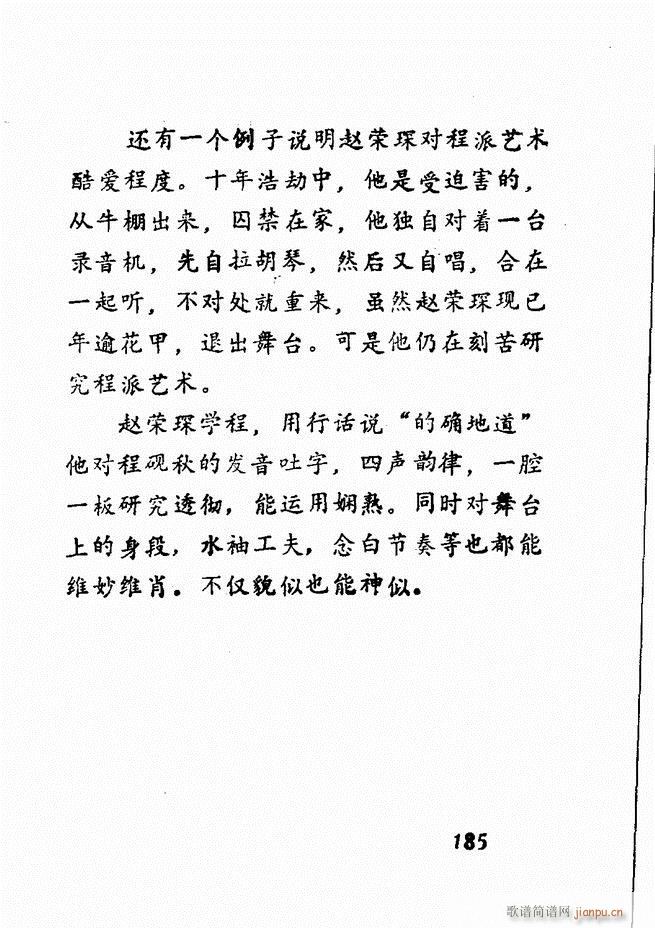 还有一个例子说明赵荣琛对程派艺术
酷爱程度。十年浩劫中，他是受迫害的，
从牛棚出来，囚禁在家，他独自对着一台
录音机，先自拉胡琴，然后又自唱，合在
一起听，不对处就重来，虽然赵荣琛现已
年逾花甲，退出舞台。可是他仍在刻苦研
究程派艺术。
赵荣琛学程，用行话说“的确地道”
他对程砚秋的发音吐字，四声韵律，一腔
一板研究透彻，能运用娴熟。同时对舞台
上的身段，水袖工夫，念白节奏等也都能
维妙维肖。不仅貌似也能神似。
185
歌谱简谱网 jianpu.cn